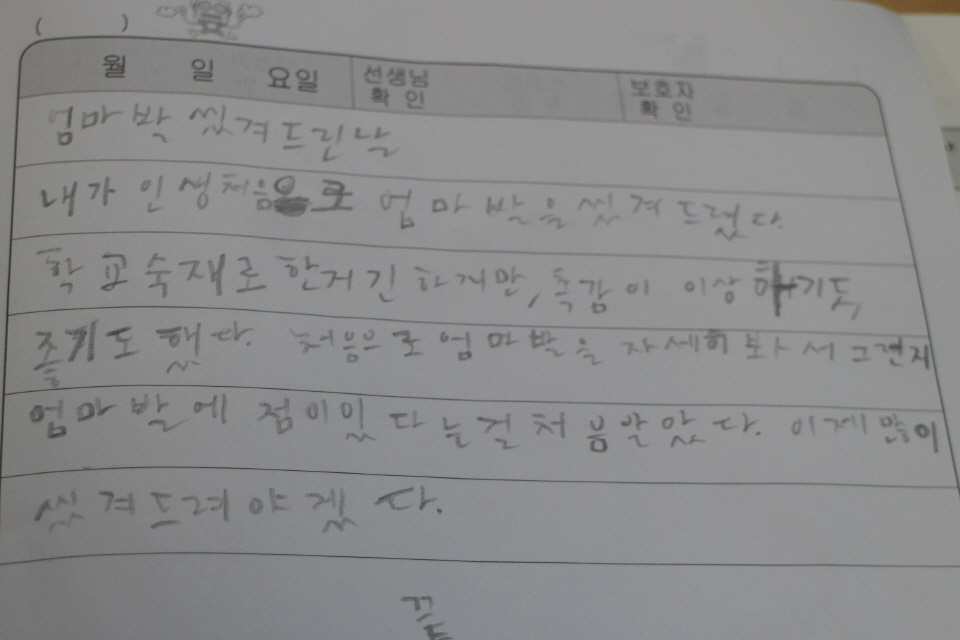 ( )
월 일 요일 선생님 확인 보호자 확인
엄마 발 씻겨드린날
내가 인생처음으로 엄마발을 씻겨드렸다.
학교숙재로 한거긴 하지만, 촉감이 이상하기도,
좋기도 했다. 처음으로 엄마발을 자세히 봐서 그런지
엄마발에 점이있다는걸 처음알았다. 이제많이
씻겨드려야겠다.
끝